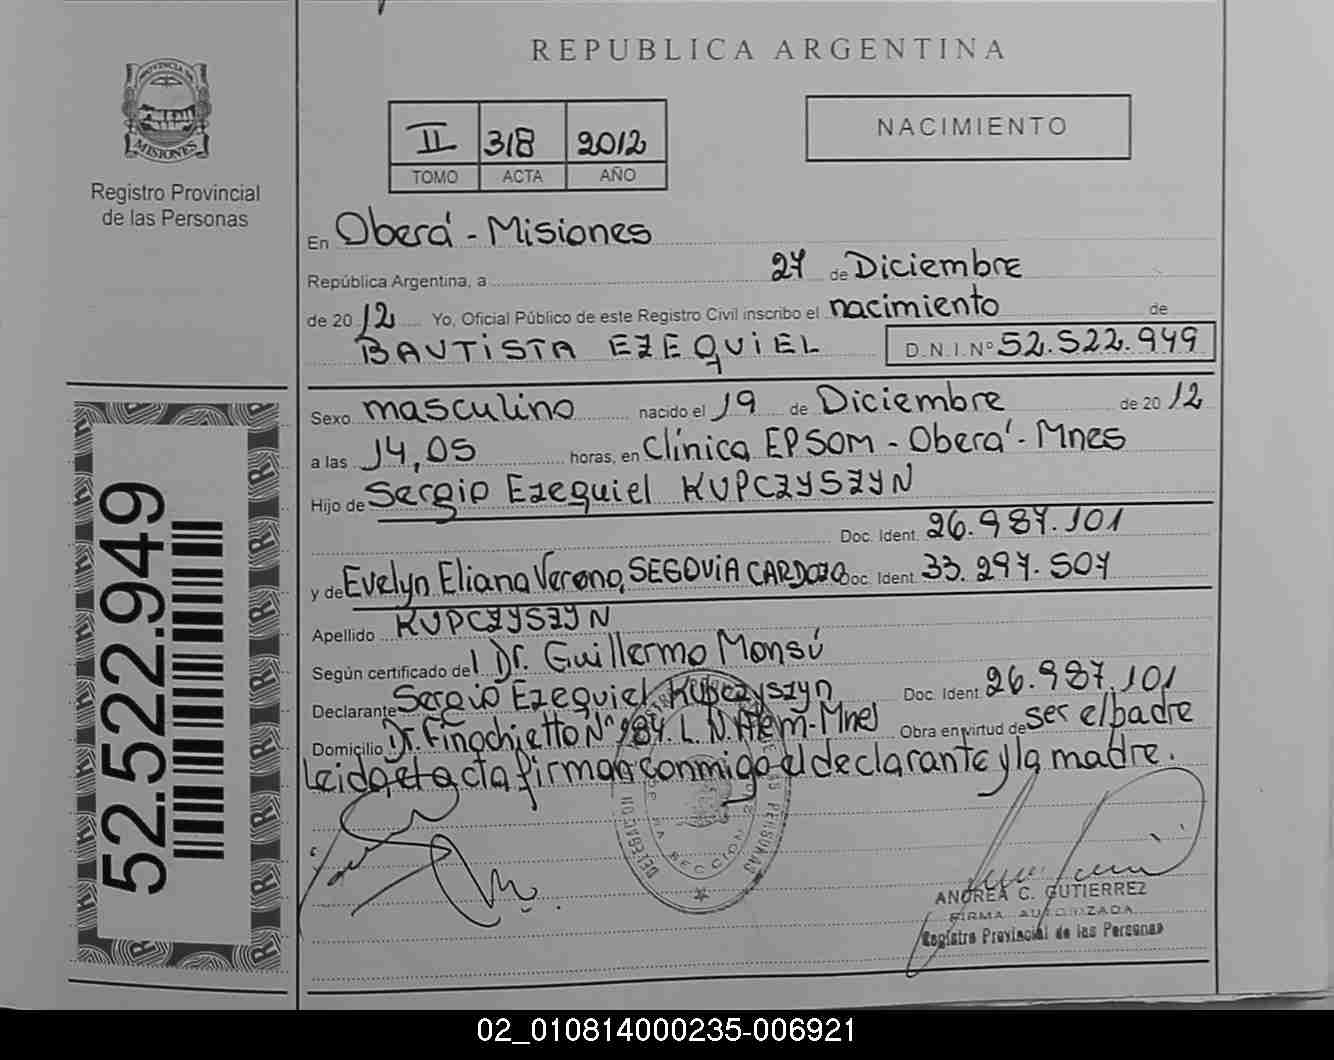 REPUBLICA ARGENTINA
PROVINCIA DE
MISIONES
Registro Provincial
de las Personas
II 318 2012
TOMO ACTA AÑO
NACIMIENTO
En Oberá - Misiones
República Argentina, a 27 de Diciembre
de 2012 Yo, Oficial Público de este Registro Civil inscribo el nacimiento de
BAUTISTA EZEQUIEL D.N.I.Nº 52.522.949
Sexo masculino nacido el 19 de Diciembre de 2012
a las 14,05 horas, en Clínica EPSOM - Oberá - Mnes
Hijo de Sergio Ezequiel KUPCZYSZYN
Doc. Ident. 26.987.101
y de Evelyn Eliana Verena, SEGOVIA CARDOZO Doc. Ident. 33.297.507
Apellido KUPCZYSZYN
Según certificado del Dr. Guillermo Monsú
Declarante Sergio Ezequiel Kupczyszyn Doc. Ident. 26.987.101
Domicilio Dr. Finochietto Nº 984. L.N. Alem-Mnes Obra en virtud de ser el padre
Leida el acta firman conmigo el declarante y la madre.
ANDREA C. GUTIERREZ
FIRMA AUTORIZADA
Registro Provincial de las Personas
52.522.949
02_010814000235-006921